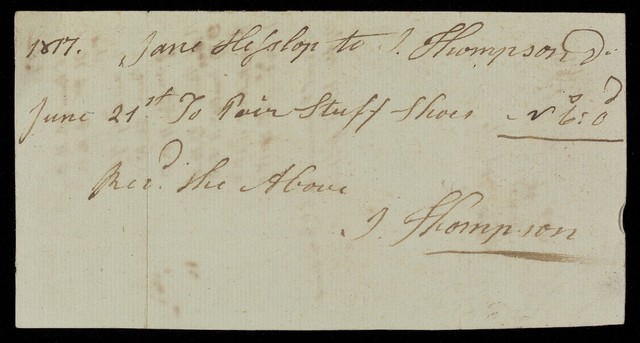 1817. Jane Heſslop to J. Thompson Dr
June 21st To Pair Stuff Shoes 6s: 0d
Recd. the Above
J Thompson